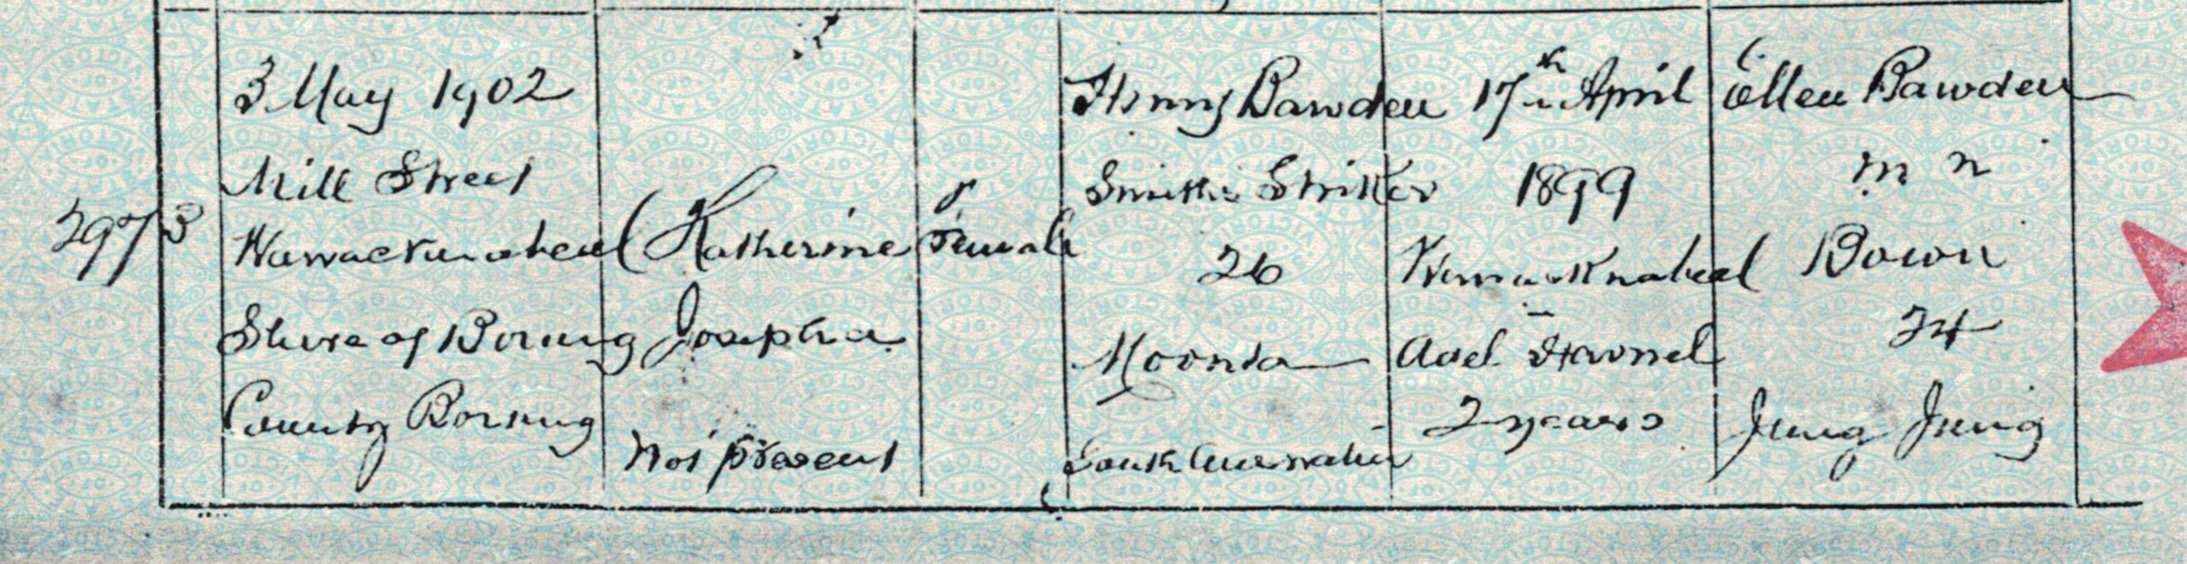 2973
3 May 1902
Mill Street
Warracknabeal
Shire of Borung
County Borung
Katherine
Josepha
Not present
Female
Henry Bawden
Smith's Striker
26
Moonta
South Australia
17th April
1899
Warracknabeal
2 years
Ellen Bawden
m n
24
Jung Jung